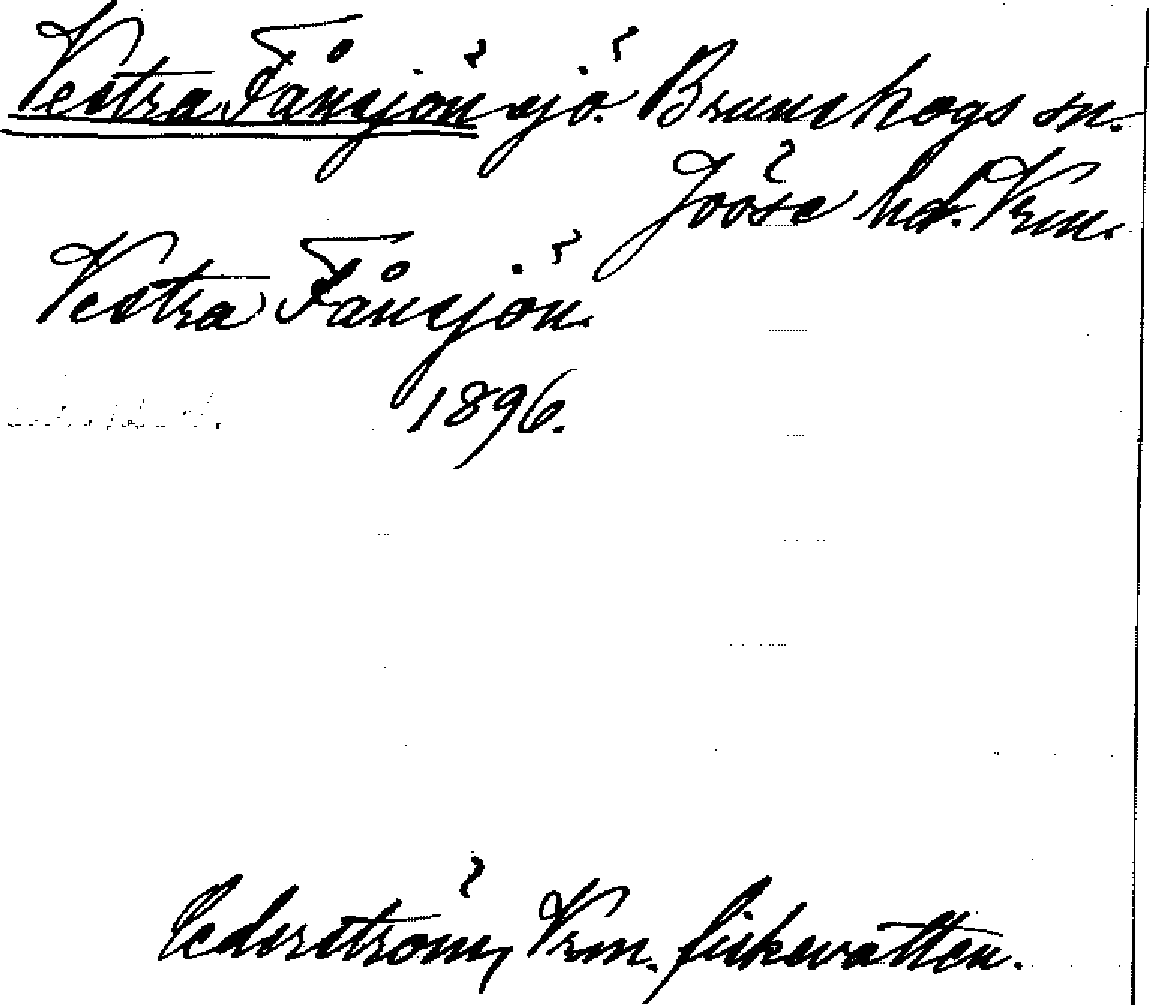 Vestra Fånsjön sjö. Brunskogs sn.
Jösse hd. Vrm.
Vestra Fånsjön.
1896.
Cederström, Vrm. fiskevatten.